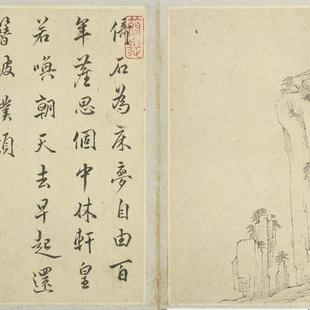 倚石為床夢自由百
年塵思個中休軒皇
若喚朝天去早起還
簪破幞頭